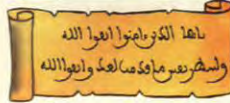 ىاىها الدىں امىوا اىعوا الله
ولىىطر ىڡس ما ڡدمى لعد واىعوا الله